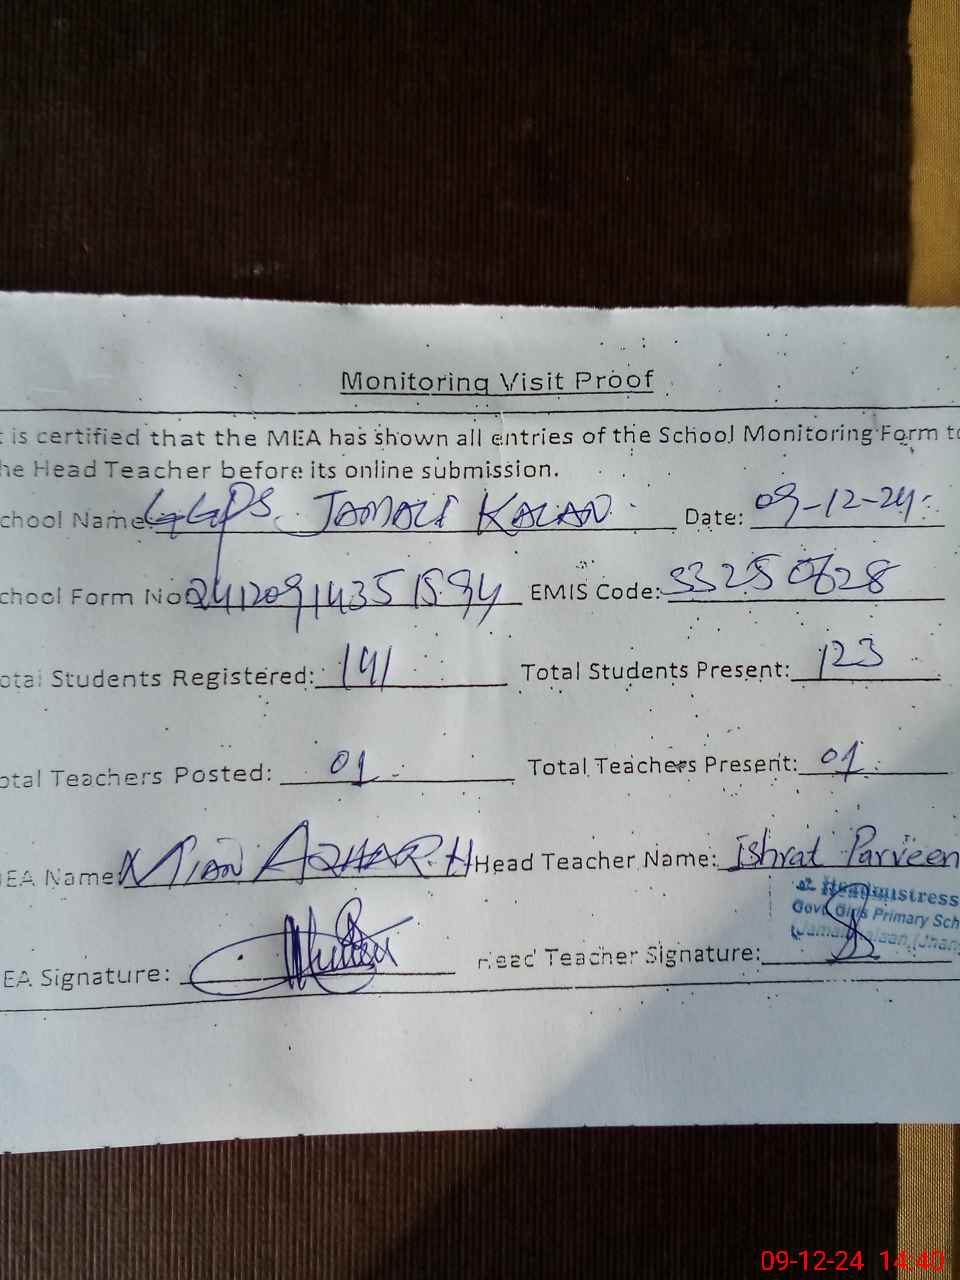 Monitoring Visit Proof
t is certified that the MEA has shown all entries of the School Monitoring Form to
he Head Teacher before its online submission.
chool Name: GGPS JAMALI KALAN Date: 09-12-24
chool Form No 24120914351594 EMIS Code: 33250628
otal Students Registered: 141 Total Students Present: 123
otal Teachers Posted: 01 Total Teachers Present: 01
EA Name MIAN AZHAR.H Head Teacher Name: Ishrat Parveen
Headmistress
Govt Girls Primary Sch
EA Signature: Head Teacher Signature:
09-12-24 14:40